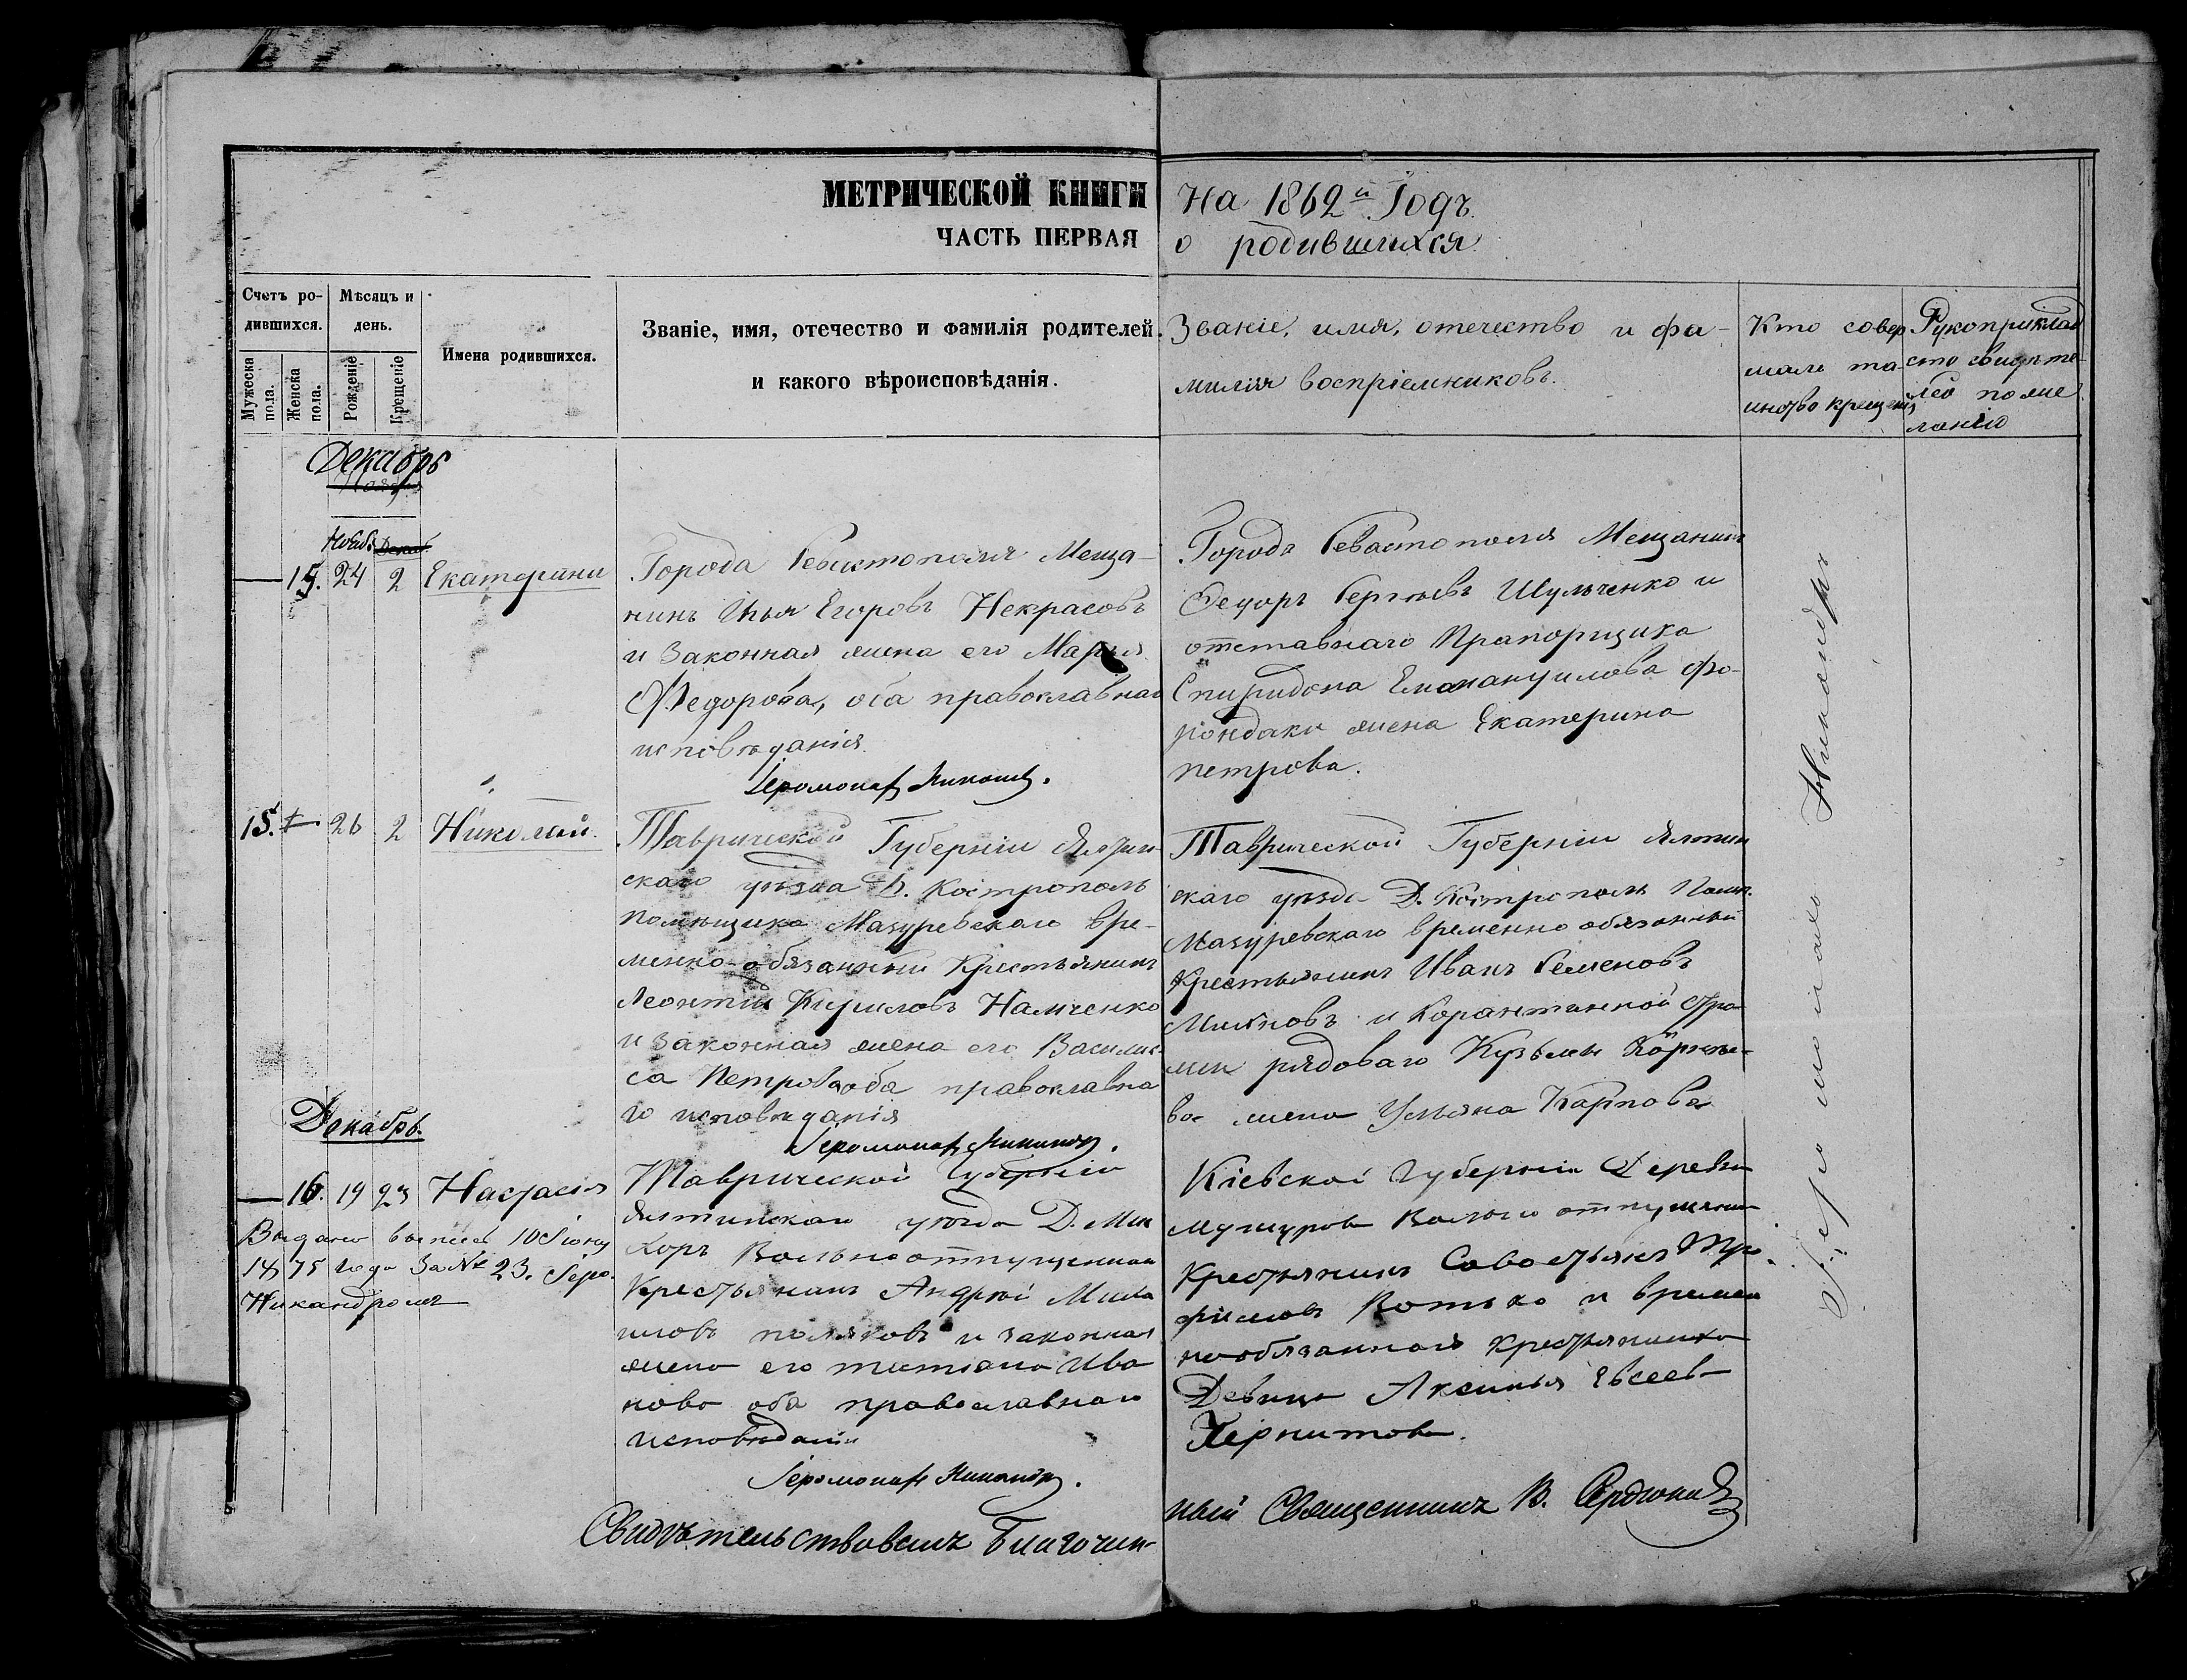 МЕТРИЧЕСКОЙ КНИГИ
ЧАСТЬ ПЕРВАЯ
На 1862й Годъ.
о родившихся
Счетъ ро-
дившихся.
Мѣсяцъ и
день.
Мужеска
пола.
Женска
пола.
Рожденіе
Крещеніе
Имена родившихся.
Званіе, имя, отечество и фамилія родителей
и какого вѣроисповѣданія.
Званіе, имя, отечество и фа-
милія воспріемниковъ.
Кто совер
шалъ та-
инство крещенія
Рукоприклад
ство свидѣте-
лей по же
ланію
Декабрь
Ноябр Декаб
15. 24 2 Екатерина
Города Севастополя Меща-
нинъ Илья Егоровъ Некрасовъ
и законная жена его Марья
Федорова, оба православнаго
исповѣданія.
Іеромонах Никандр.
Города Севастополя Мещанинъ
Федоръ Сергѣевъ Шульченко и
отставнаго Прапорщика
Спиридона Емануилова
жена Екатерина
петрова.
15. 26 2 Николай.
Таврической Губерніи Ялтин
скаго уѣзда Д. Кострополь
помѣщика Мазуревскаго вре-
менно-обязанный Крестьянинъ
Леонтій Кириловъ Намченко
и законная жена его Василис-
са Петрова оба православна
го исповѣданія
Іеромонах Никандр.
Таврической Губерніи Ялтин
скаго уѣзда Д. Кострополь Помѣщ.
Мазуревскаго временно обязанный
Крестьянинъ Иванъ Семеновъ
и Карантинной Стра
жи рядоваго Кузьмы
ва жена Ульяна Карпова
Декабрь.
16. 19 23 Настасія
Выдана выпись 10 Іюня
1875 года За № 23. Іеро.
Никандромъ
Таврической Губерніи
Ялтинскаго уѣзда Д. Мис
хоръ Вольноотпущенной
Крестьянинъ Андрей Миха
иловъ поляковъ и законная
жена его татіана Ива
нова оба православнаго
исповѣданія
Іеромонах Никандр.
Кіевской Губерніи Деревни
Вольно отпущенной
Крестьянинъ Савостьянъ Тро
фимовъ Котько и времен
нообязанная крестьянинка
Девица Аксинья Евсеева
Іеромонахъ Никандръ
Свидѣтельствовалъ Благочин-
ный Священникъ В. Сердюковъ